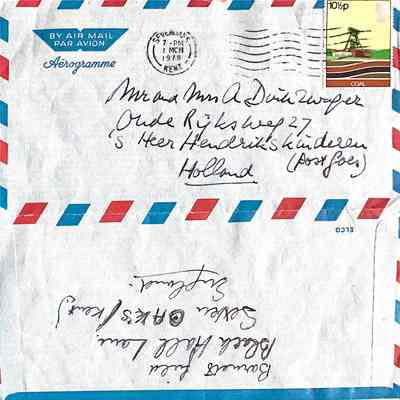 BY AIR MAIL
PAR AVION
Aérogramme
SEVENOAKS
7-PM
1 MCH
1978
KENT
10½p
COAL
Mr and Mrs A
Oude Rijksweg 27
's Heer Hendrikskinderen
(post Goes)
Holland
ELCO
Barnett field
Black Hall Lane,
Seven OAKS (Kent)
England.